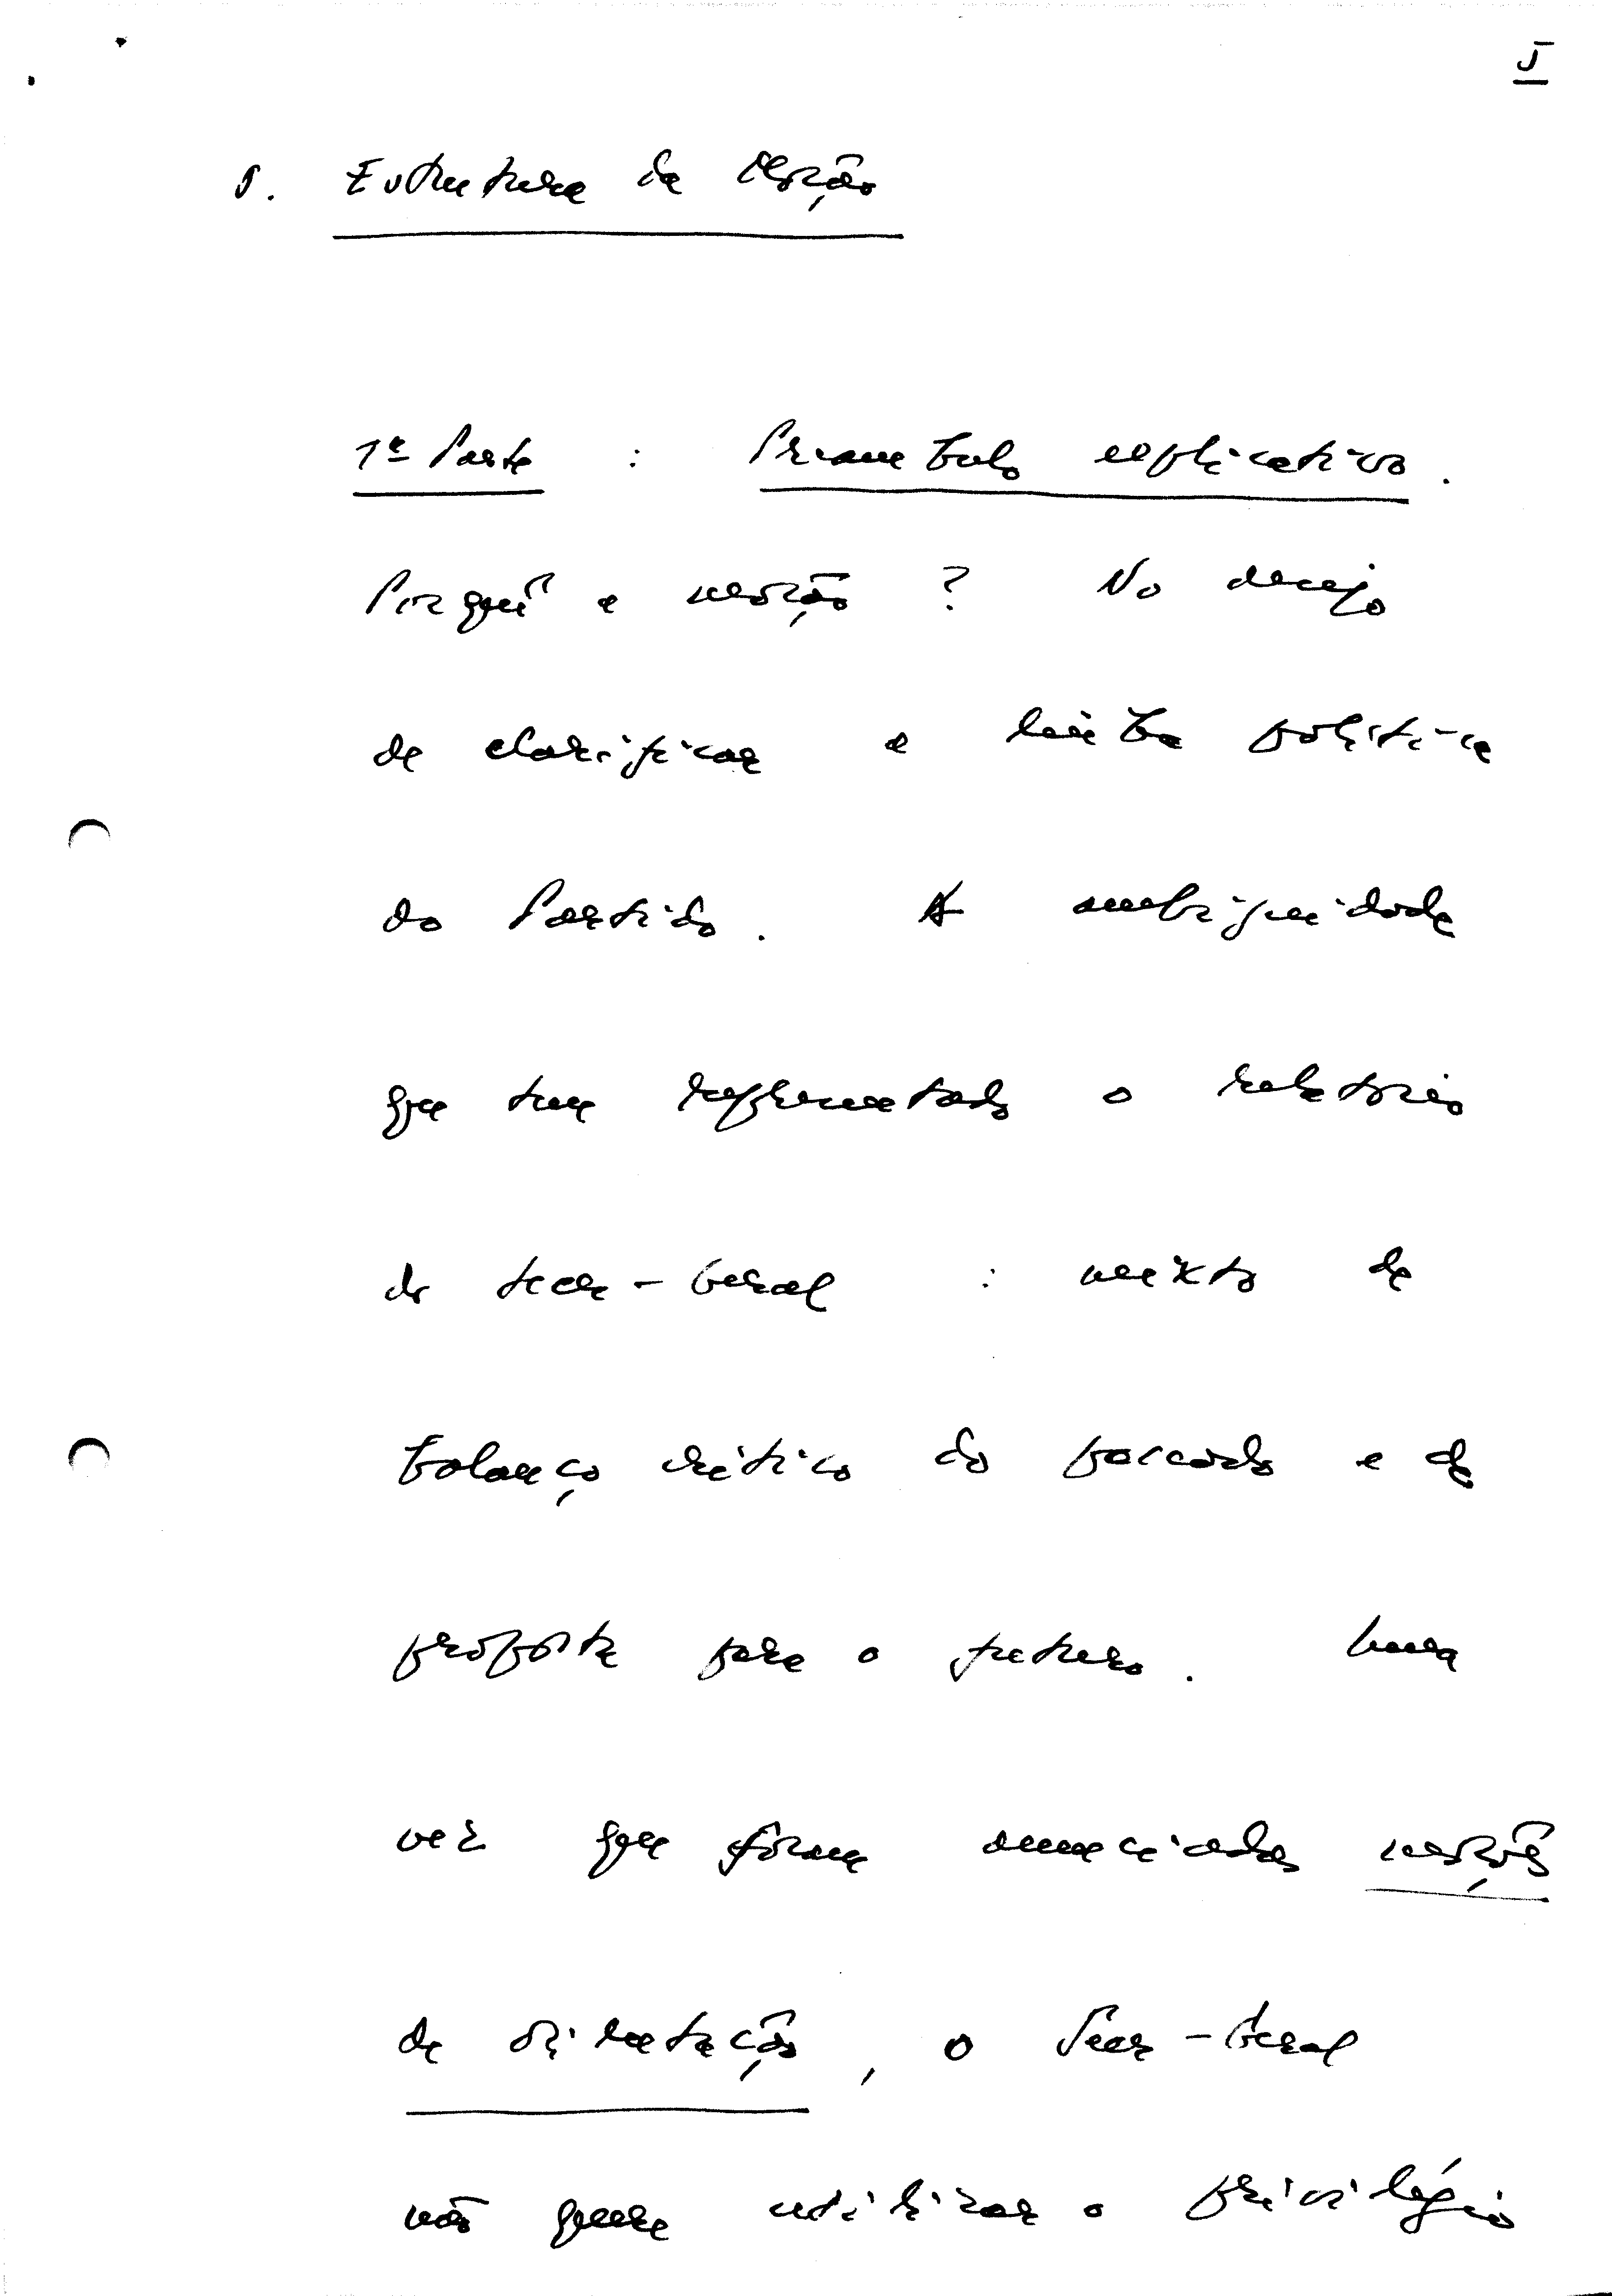 5
5. Estrutura da Moção
1ª Parte : Preambulo explicativo.
Porquê a moção ? No desejo
de clarificar a linha política
do Partido. A ambiguidade
que tem representado o relatório
do Secr-Geral : mixto de
balanço crítico do passado e de
proposta para o futuro. Uma
vez que foram anunciadas moções
de orientação, o Secr-Geral
não quere utilizar o privilégio